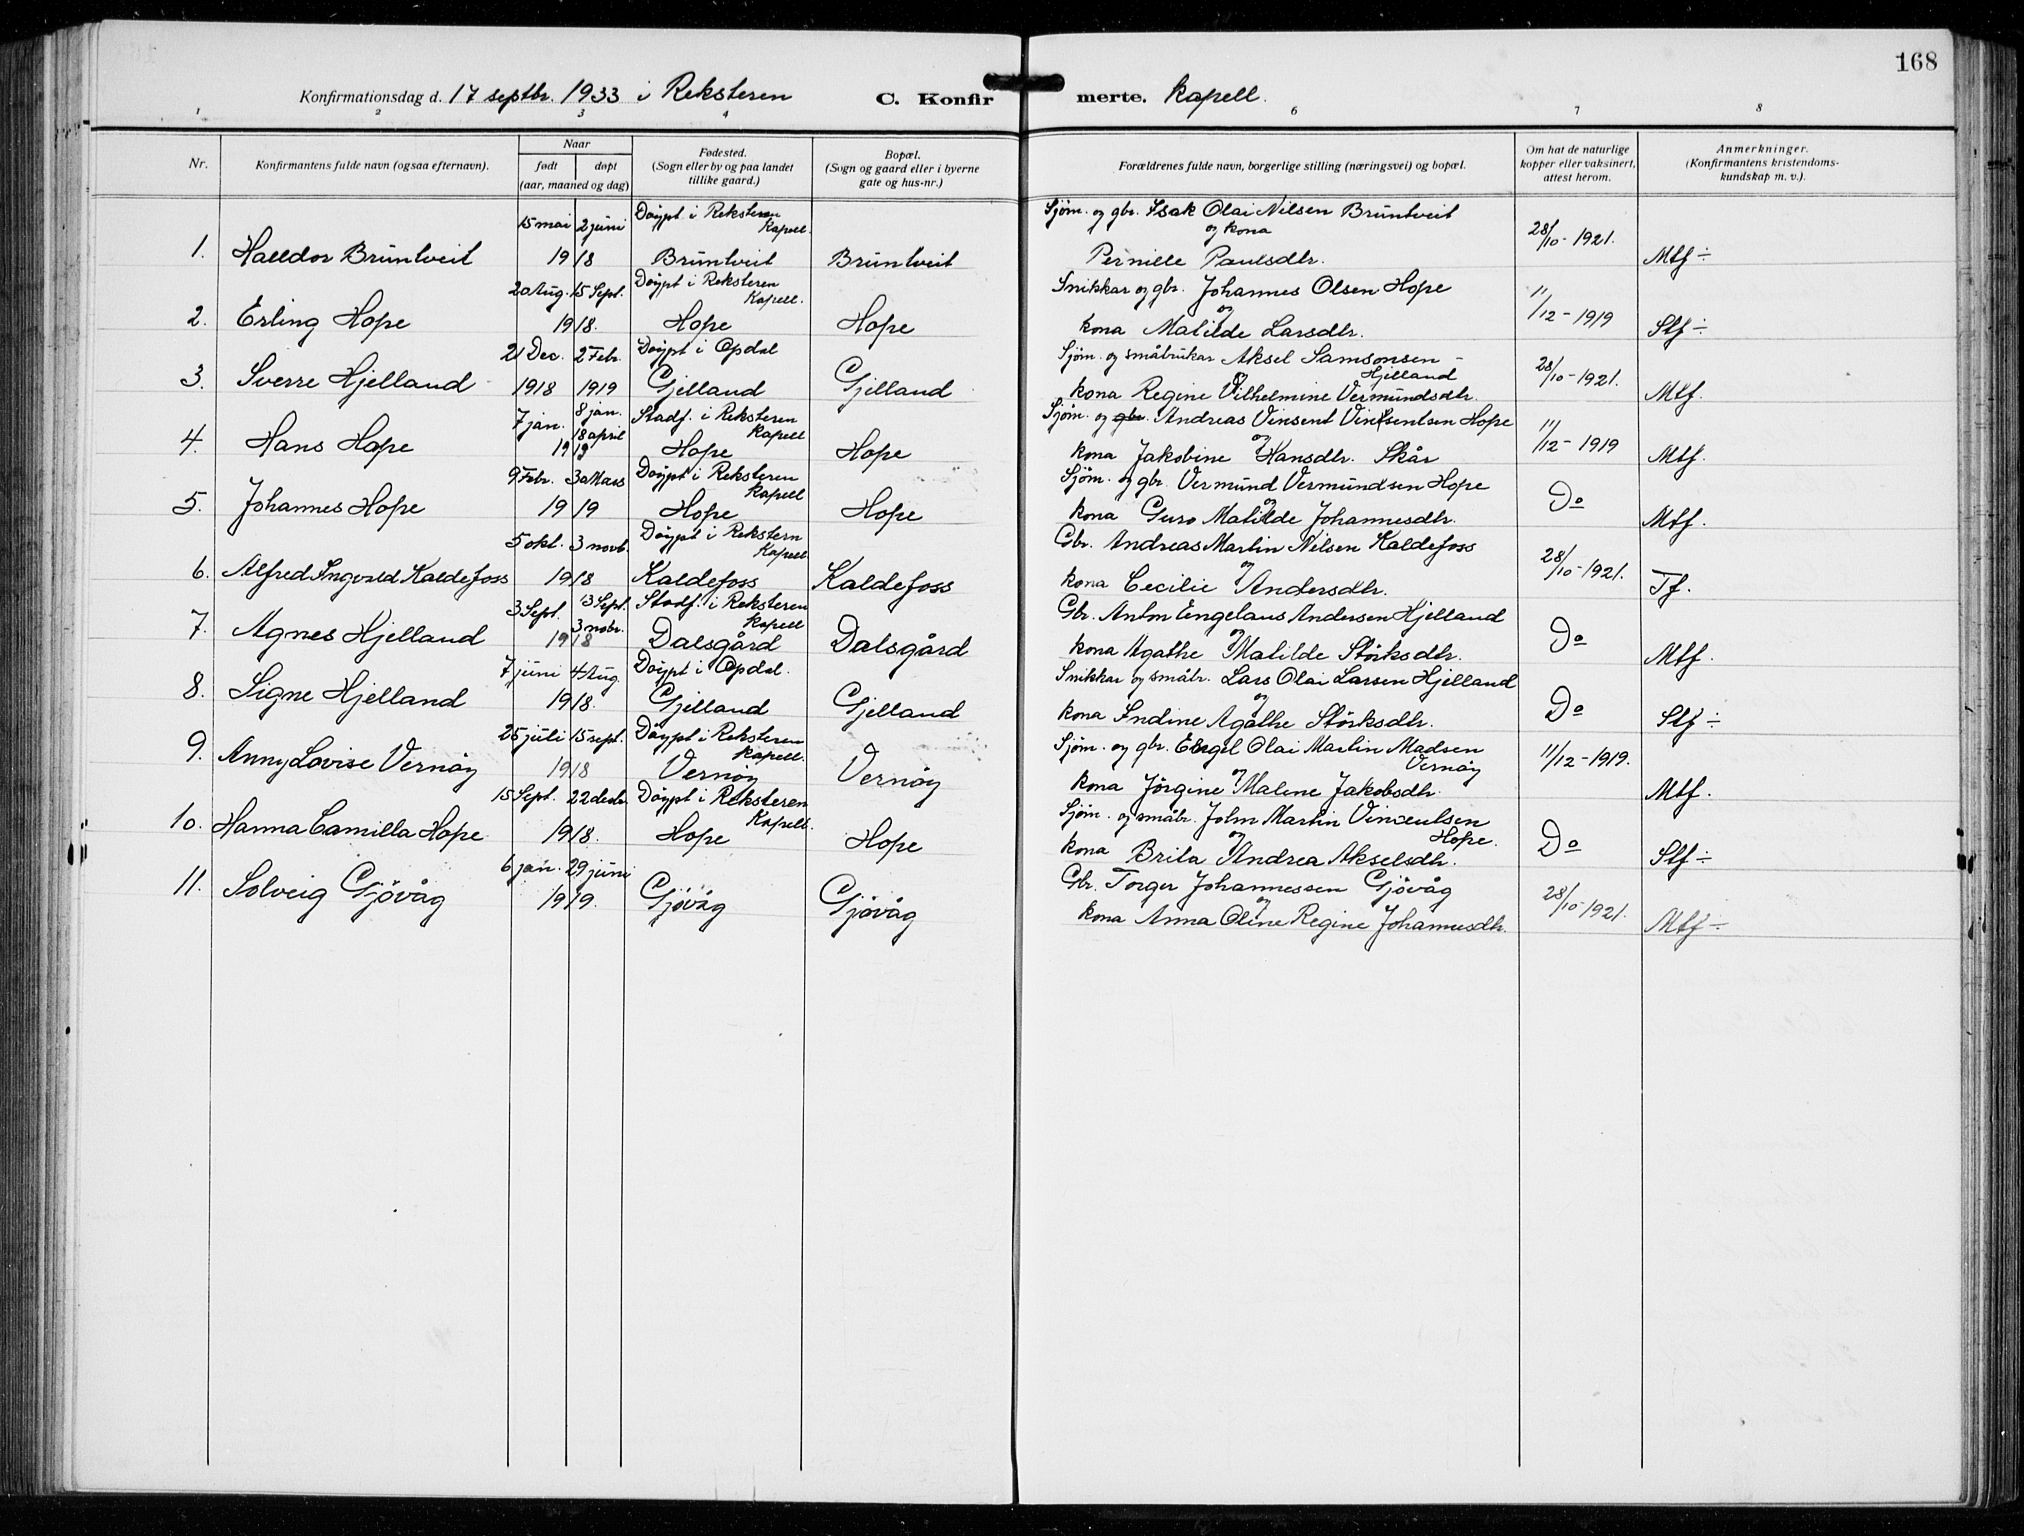 168
Konfirmationsdag d. 17 septbr. 1933 i Reksteren C. Konfir merte. Kapell.
1 2 3 4 6 7 8
Nr. Konfirmantens fulde navn (ogsaa efternavn). Naar født døpt (aar, maaned og dag) Fødested. (Sogn eller by og paa landet tillike gaard.) Bopæl. (Sogn og gaard eller i byerne gate og hus-nr.) Forældrenes fulde navn, borgerlige stilling (næringsvei) og bopæl. Om hat de naturlige kopper eller vaksinert, attest herom. Anmerkninger. (Konfirmantens kristendoms-kundskap m. v.).
15 mai 2 juni Döypt i Reksteren Kapell. Sjöm. og gbr. Isak Olai Nilsen Brüntveit
og kona 28/10-1921.
1. Halldor Brüntveit 1918 Brüntveit Brüntveit Pernille Paulsdtr. Mtf ÷
20 Aug. 15 Sept. Döypt i Reksteren Kapell. Snikkar og gbr. Johannes Olsen Hope
og 11/12-1919
2. Erling Hope 1918. Hope Hope kona Matilde Larsdtr. Stf ÷
21 Dec. 2 Febr. Döypt i Opdal Sjöm. og småbrukar Aksel Samsonsen - Hjelland
og 28/10-1921.
3. Sverre Hjelland 1918 1919 Gjelland Gjelland kona Regine Vilhelmine Vermündsdtr. Mtf.
7 jan. 8 jan. 18 april Stadf. i Reksteren Kapell Sjöm. og gbr. Andreas Vinsent Vinsentsen Hope
og 11/12-1919
4. Hans Hope 1919 Hope Hope kona Jakobine Hansdtr. Skår Mtf.
9 Febr. 30 Mars Döypt i Reksteren Kapell Sjöm. og gbr. Vermünd Vermündsen Hope
og Do
5. Johannes Hope 1919 Hope Hope kona Guro Matilde Johannesdtr. Mtf.
5 okt. 3 novb. Döypt i Rekstern Kapell Gbr. Andreas Martin Nilsen Kaldefoss
og 28/10-1921.
6. Alfred Ingvald Kaldefoss 1918 Kaldefoss Kaldefoss kona Cecilie Andersdtr. Tf.
3 Sept. 13 Sept. 3 nobr. Stadf. i Reksteren Kapell Gbr. Anton Engelaus Andersen Hjelland
og Do
7. Agnes Hjelland 1918 Dalsgård Dalsgård kona Agathe Matilde Störksdtr. Mtf.
7 juni 4 Aug. Döypt i Opdal. Snikkar og småbr. Lars Olai Larsen Hjelland
og Do
8. Signe Hjelland 1918. Gjelland Gjelland kona Indine Agathe Störksdtr. Stf ÷
25 juli 15 sept. Döypt i Reksteren Kapell. Sjöm. og gbr. Engel Olai Martin Madsen Vernöy
og 11/12-1919.
9. Anny Lovise Vernöy 1918 Vernöy Vernöy kona Jörgine Malene Jakobsdtr. Mtf.
15 Sept. 22 desbr. Döypt i Reksteren Kapell. Sjöm. og småbr. John Martin Vincentsen Hope.
og Do
10. Hanna Camilla Hope 1918. Hope Hope kona Brita Andrea Akselsdtr. Stf ÷
6 jan. 29 juni Gbr. Torger Johannessen Gjövåg
og 28/10-1921.
11. Solveig Gjövåg 1919. Gjövåg Gjövåg kona Anna Oline Regine Johannesdtr. Mtf ÷